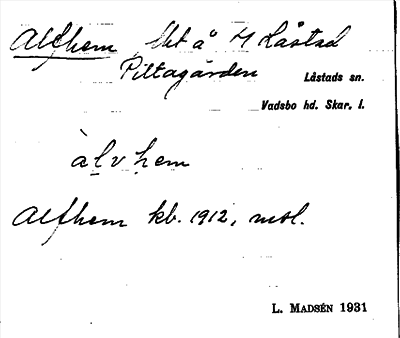 Alfhem Lht å 7 Låstad
Piltagården Låstads sn.
Vadsbo hd. Skar. l.
àlvhem
Alfhem kb. 1912, msl.
L. MADSÉN 1931